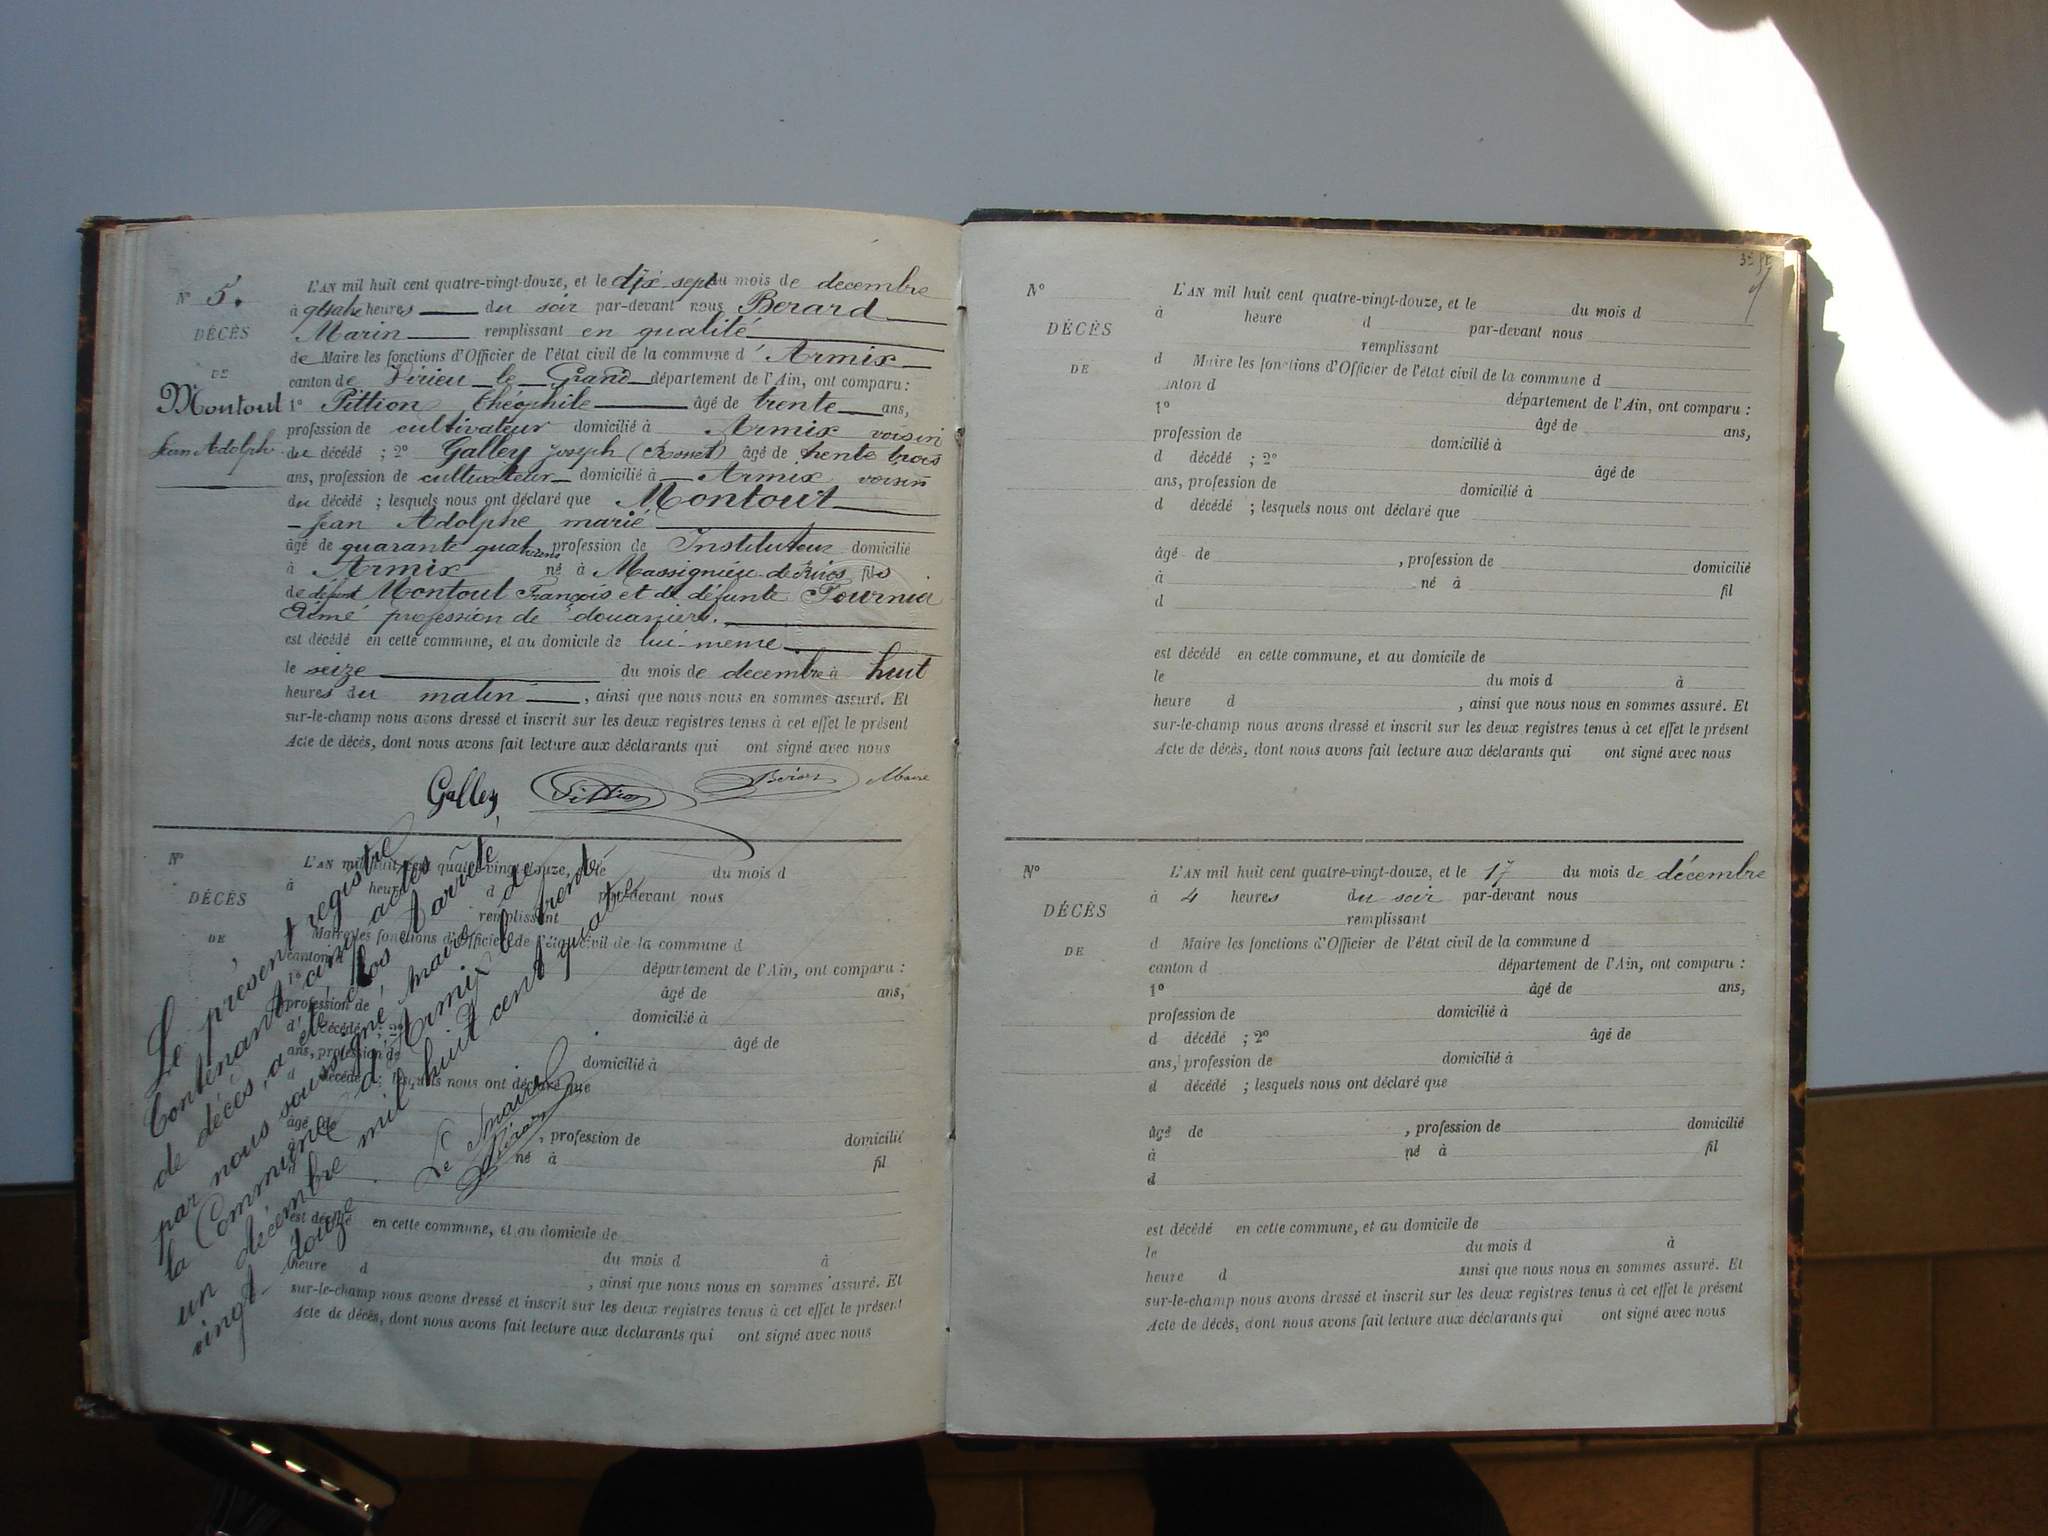 N° 5.
DÉCÈS
DE
Montout
Jean Adolph
L'AN mil huit cent quatre-vingt-douze, et le dix sept du mois de decembre
à quatre heures du soir par-devant nous Berard
Marin remplissant en qualité
de Maire les fonctions d'Officier de l'état civil de la commune d'Armix
canton de Virieu-le-Grand département de l'Ain, ont comparu :
1° Pittion théophile âgé de trente ans,
profession de cultivateur domicilié à Armix voisin
du décédé ; 2° Galley Joseph âgé de trente trois
ans, profession de cultivateur domicilié à Armix voisin
du décédé ; lesquels nous ont déclaré que Montout
Jean Adolphe marié
âgé de quarante quatre profession de Instituteur domicilié
à Armix né à Massignieu-de-Rives fils
de défunt Montout François et de défunte Fournier
Aimé profession de douaniers.
est décédé en cette commune, et au domicile de lui-meme
le seize du mois de decembre à huit
heures du matin , ainsi que nous nous en sommes assuré. Et
sur-le-champ nous avons dressé et inscrit sur les deux registres tenus à cet effet le présent
Acte de décès, dont nous avons fait lecture aux déclarants qui ont signé avec nous
Galley Pittion Bérard Maire
N°
DÉCÈS
DE
L'AN mil huit cent quatre-vingt-douze, et le du mois d
à heure d par-devant nous
remplissant
Maire les fonctions d'Officier de l'état civil de la commune d
canton d
département de l'Ain, ont comparu :
1° âgé de ans,
profession de domicilié à
d décédé ; 2° âgé de
ans, profession de domicilié à
d décédé ; lesquels nous ont déclaré que
âgé de , profession de domicilié
à né à fil
est décédé en cette commune, et au domicile de
du mois d à
heure d , ainsi que nous nous en sommes assuré. Et
sur-le-champ nous avons dressé et inscrit sur les deux registres tenus à cet effet le présent
Acte de décès, dont nous avons fait lecture aux déclarants qui ont signé avec nous
Le présent registre
Contenant cinq actes
de décès, a été clos et arrêté
par nous soussigné, maire de
la Commune d'Armix le trente
un décembre mil huit cent quatre
vingt-douze
Le Maire
Bérard
N°
DÉCÈS
DE
L'AN mil huit cent quatre-vingt-douze, et le du mois d
à heure d par-devant nous
remplissant
d Maire les fonctions d'Officier de l'état civil de la commune d
canton d département de l'Ain, ont comparu :
1° âgé de ans,
profession de domicilié à
d décédé ; 2° âgé de
ans, profession de domicilié à
d décédé ; lesquels nous ont déclaré que
âgé de , profession de domicilié
à né à fil
d
est décédé en cette commune, et au domicile de
le du mois d à
heure d , ainsi que nous nous en sommes assuré. Et
sur-le-champ nous avons dressé et inscrit sur les deux registres tenus à cet effet le présent
Acte de décès, dont nous avons fait lecture aux déclarants qui ont signé avec nous
N°
DÉCÈS
DE
L'AN mil huit cent quatre-vingt-douze, et le 17 du mois de décembre
à 4 heures du soir par-devant nous
remplissant
d Maire les fonctions d'Officier de l'état civil de la commune d
canton d département de l'Ain, ont comparu :
1° âgé de ans,
profession de domicilié à
d décédé ; 2° âgé de
ans, profession de domicilié à
d décédé ; lesquels nous ont déclaré que
âgé de , profession de domicilié
à né à fil
d
est décédé en cette commune, et au domicile de
le du mois d à
heure d ainsi que nous nous en sommes assuré. Et
sur-le-champ nous avons dressé et inscrit sur les deux registres tenus à cet effet le présent
Acte de décès, dont nous avons fait lecture aux déclarants qui ont signé avec nous